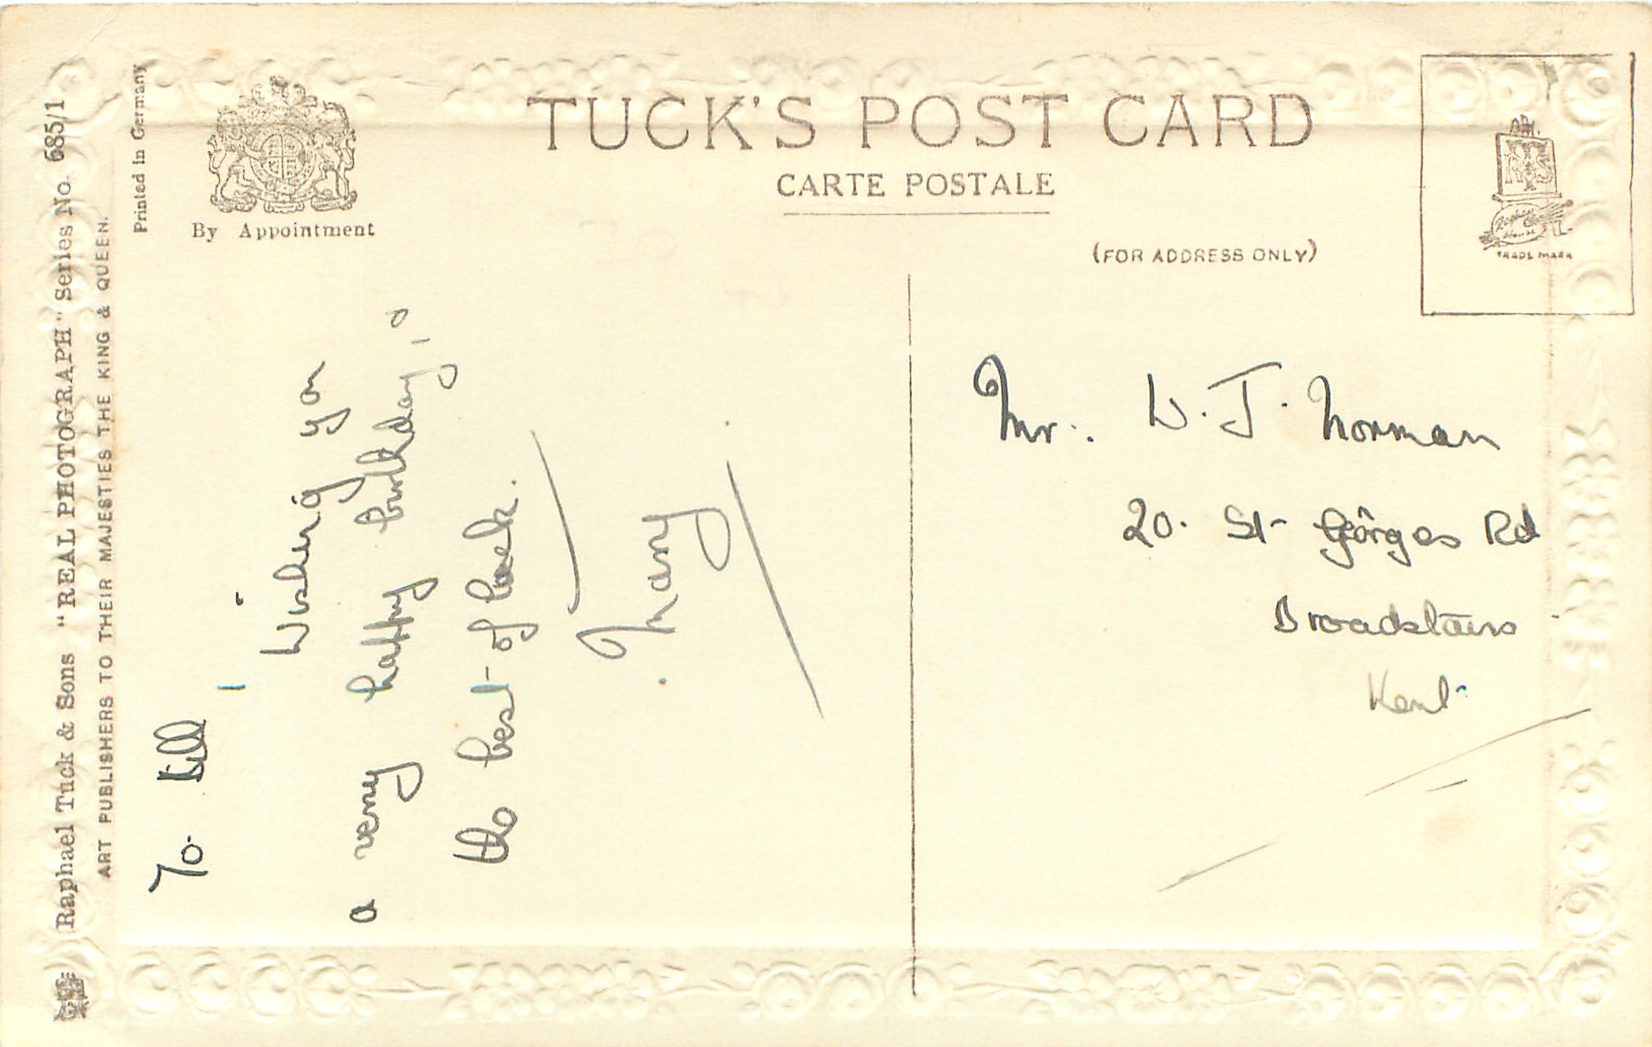 Raphael Tuck & Sons "REAL PHOTOGRAPH" Series No. 685/1
ART PUBLISHERS TO THEIR MAJESTIES THE KING & QUEEN.
Printed in Germany
By Appointment
TUCK'S POST CARD
CARTE POSTALE
(FOR ADDRESS ONLY)
TRADE MARK
To Bill
Wishing you
a very happy birthday, &
the best of luck.
Mary
Mr. W. J. Norman
20. St Georges Rd
Broadstairs
Kent